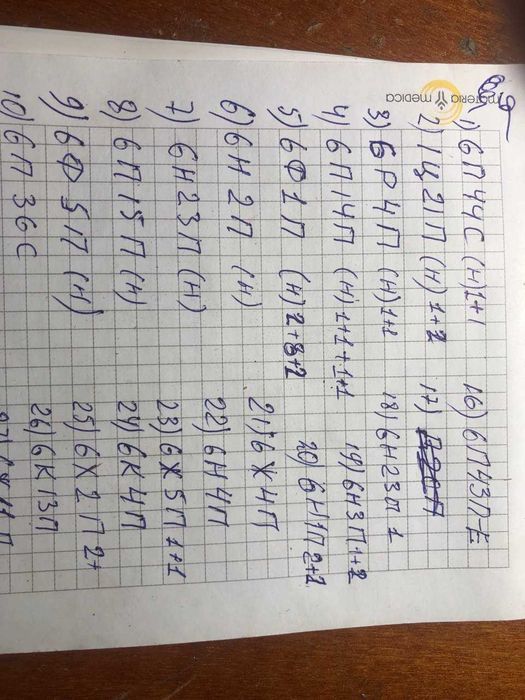 materia medica
1) 6П44С (Н) 1+1
2) 1Ц21П (Н) 1+1
3) 6Р4П (Н) 1+1
4) 6П14П (Н) 1+1+1+1
5) 6Ф1П (Н) 2+8+2
6) 6Н2П (Н)
7) 6Н23П (Н)
8) 6П15П (Н)
9) 6Ф5П (Н)
10) 6П36С
16) 6П43П-Е
17)
18) 6Н23П 1
19) 6Н3П 1+2
20) 6Н1П 2+2
21) 6Ж4П
22) 6Н4П
23) 6Ж5П 1+1
24) 6К4П
25) 6Х2П 2+
26) 6К13П